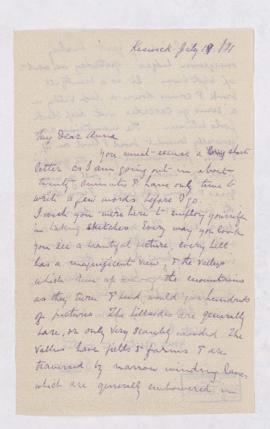 Keswick July 19 /71
My Dear Anna
You must excuse a very short
letter as I am going out in about
twenty minutes & have only time to
write a few words before I go.
I wish you were here to employ yourself
in taking sketches. Every way you look
you see a beautiful picture, every hill
has a magnificent view, & the valleys
which run up among the mountains
as they turn & bend would give hundreds
of pictures. The hillsides are generally
bare, or only very scantily wooded. The
valleys have fields & farms & are
traversed by narrow winding lanes
which are generally embowered in